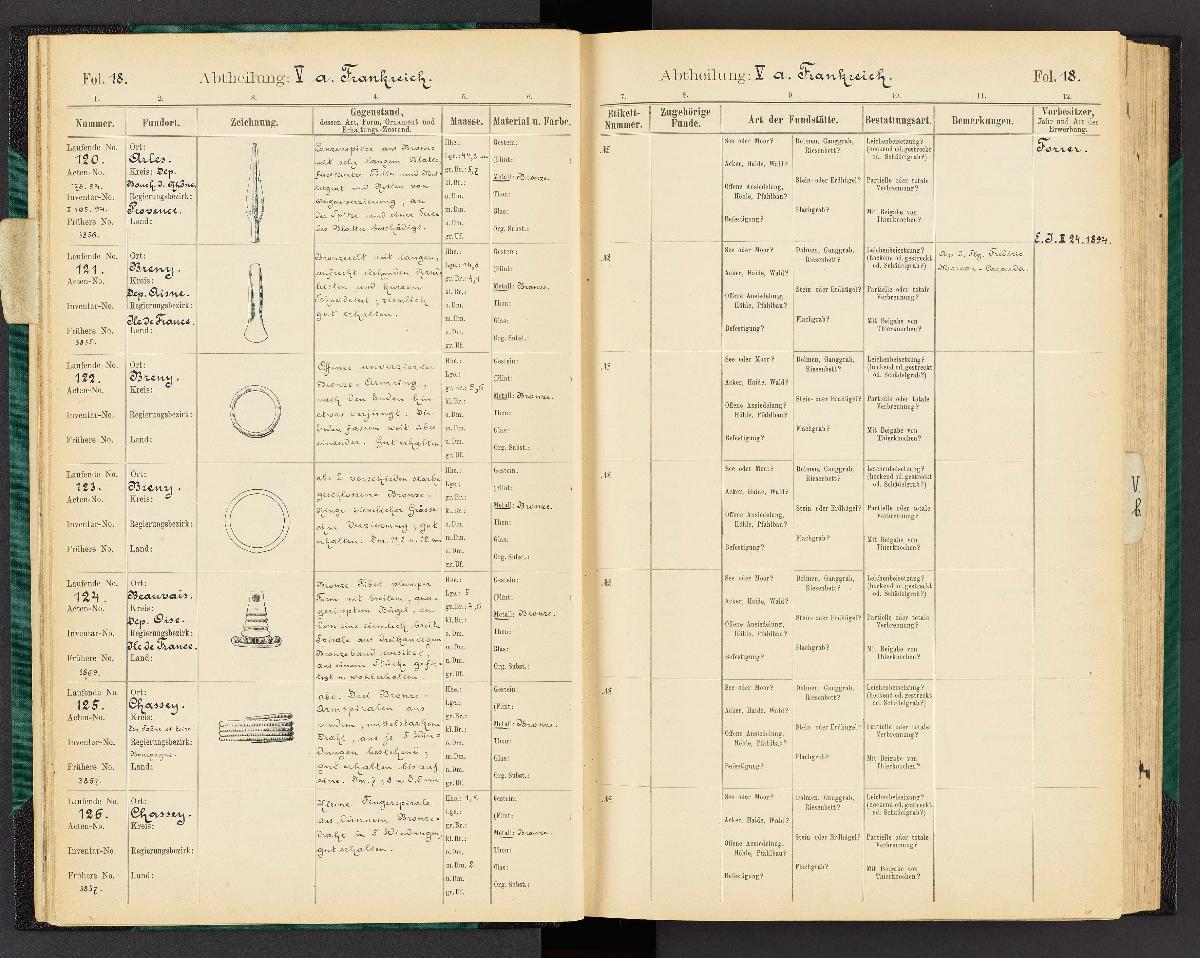 Fol. 18.
Abtheilung: V a. Frankreich.
1. 2. 3. 4. 5. 6.
Nummer. Fundort. Zeichnung. Gegenstand, dessen Art, Form, Ornament und Erhaltungs-Zustand. Maasse. Material u. Farbe.
Laufende No.
120.
Acten-No.
Inventar-No.
I 105. 94.
Frühere No.
3836.
Ort:
Arles.
Kreis: Dep.
Bouch. d. Rhône.
Regierungsbezirk:
Provence.
Land:
Lanzenspitze aus Bronze
mit sehr langem Blatte
an
der Spitze und einer Seite
des Blattes beschädigt.
Hhe.:
Lge.: 44,2 cm
gr. Br.: 5,7
kl. Br.:
o. Dm.
m. Dm.
u. Dm.
gr. Uf.
Gestein:
(Flint: )
Metall: Bronze.
Thon:
Glas:
Org. Subst.:
Laufende No.
121.
Acten-No.
Inventar-No.
Frühere No.
3835.
Ort:
Breny.
Kreis:
Dep. Aisne.
Regierungsbezirk:
Ile de France.
Land:
Bronzecelt mit langen,
aufrecht stehenden Rand-
leisten und kurzem
Schneideteil, ziemlich
gut erhalten.
Hhe.:
Lge.: 14,8
gr. Br.: 4,1
kl. Br.:
o. Dm.
m. Dm.
u. Dm.
gr. Uf.
Gestein:
(Flint: )
Metall: Bronze.
Thon:
Glas:
Org. Subst.:
Laufende No.
122.
Acten-No.
Inventar-No.
Frühere No.
Ort:
Breny.
Kreis:
Regierungsbezirk:
Land:
Offener unverzierter
Bronze-Armring,
nach den Enden hin
etwas verjüngt. Die
Enden fassen weit über
einander. Gut erhalten.
Hhe.:
Lge.:
gr. Br.: 5,6
kl. Br.:
o. Dm.
m. Dm.
u. Dm.
gr. Uf.
Gestein:
(Flint: )
Metall: Bronze.
Thon:
Glas:
Org. Subst.:
Laufende No.
123.
Acten-No.
Inventar-No.
Frühere No.
Ort:
Breny.
Kreis:
Regierungsbezirk:
Land:
ab. 2 verschieden starke
geschlossene Bronze-
Ringe ziemlicher Grösse
ohne Verzierung, gut
erhalten. Dm. 11,2 u. 12 cm
Hhe.:
Lge.:
gr. Br.:
kl. Br.:
o. Dm.
m. Dm.
u. Dm.
gr. Uf.
Gestein:
(Flint: )
Metall: Bronze.
Thon:
Glas:
Org. Subst.:
Laufende No.
124.
Acten-No.
Inventar-No.
Frühere No.
1869.
Ort:
Beauvais.
Kreis:
Dep. Oise.
Regierungsbezirk:
Ile de France.
Land:
Bronze-Fibel plumper
Form mit breitem, quer
geripptem Bügel, an
dem eine ziemlich breite
Spirale aus dreikantigem
Bronzeband ansitzt,
aus einem Stücke gefer-
tigt u. wohlerhalten.
Hhe.:
Lge.: 5
gr. Br.: 3,6
kl. Br.:
o. Dm.
m. Dm.
u. Dm.
gr. Uf.
Gestein:
(Flint: )
Metall: Bronze.
Thon:
Glas:
Org. Subst.:
Laufende No.
125.
Acten-No.
Inventar-No.
Frühere No.
3837.
Ort:
Chassey.
Kreis:
Dep. Saône et Loire
Regierungsbezirk:
Bourgogne.
Land:
abc. Drei Bronze-
Armspiralen aus
rundem, mittelstarkem
Draht, aus je 5 Win-
dungen bestehend;
gut erhalten bis auf
eine.
Hhe.:
Lge.:
gr. Br.:
kl. Br.:
o. Dm.
m. Dm.
u. Dm.
gr. Uf.
Gestein:
(Flint: )
Metall: Bronze.
Thon:
Glas:
Org. Subst.:
Laufende No.
126.
Acten-No.
Inventar-No.
Frühere No.
3837.
Ort:
Chassey.
Kreis:
Regierungsbezirk:
Land:
Kleine Fingerspirale
aus dünnem Bronze-
draht in 5 Windungen,
gut erhalten.
Hhe.: 1,2
Lge.:
gr. Br.:
kl. Br.:
o. Dm.
m. Dm. 2
u. Dm.
gr. Uf.
Gestein:
(Flint: )
Metall: Bronze.
Thon:
Glas:
Org. Subst.:
Abtheilung: V a. Frankreich.
Fol. 18.
7. 8. 9. 10. 11. 12.
Etikett-Nummer. Zugehörige Funde. Art der Fundstätte. Bestattungsart. Bemerkungen. Vorbesitzer, Jahr und Art der Erwerbung.
No
See oder Moor? Dolmen, Ganggrab, Riesenbett? Leichenbeisetzung? (hockend od. gestreckt od. Schädelgrab?)
Acker, Haide, Wald?
Stein- oder Erdhügel? Partielle oder totale Verbrennung?
Offene Ansiedelung, Höhle, Pfahlbau?
Flachgrab? Mit Beigabe von Thierknochen?
Befestigung?
Forrer.
E. J. II 24. 1894.
No
See oder Moor? Dolmen, Ganggrab, Riesenbett? Leichenbeisetzung? (hockend od. gestreckt od. Schädelgrab?)
Acker, Haide, Wald?
Stein- oder Erdhügel? Partielle oder totale Verbrennung?
Offene Ansiedelung, Höhle, Pfahlbau?
Flachgrab? Mit Beigabe von Thierknochen?
Befestigung?
Frédéric
Moreau-Caranda.
No
See oder Moor? Dolmen, Ganggrab, Riesenbett? Leichenbeisetzung? (hockend od. gestreckt od. Schädelgrab?)
Acker, Haide, Wald?
Stein- oder Erdhügel? Partielle oder totale Verbrennung?
Offene Ansiedelung? Höhle, Pfahlbau?
Flachgrab? Mit Beigabe von Thierknochen?
Befestigung?
No
See oder Moor? Dolmen, Ganggrab, Riesenbett? Leichenbeisetzung? (hockend od. gestreckt od. Schädelgrab?)
Acker, Haide, Wald?
Stein- oder Erdhügel? Partielle oder totale Verbrennung?
Offene Ansiedelung, Höhle, Pfahlbau?
Flachgrab? Mit Beigabe von Thierknochen?
Befestigung?
No
See oder Moor? Dolmen, Ganggrab, Riesenbett? Leichenbeisetzung? (hockend od. gestreckt od. Schädelgrab?)
Acker, Haide, Wald?
Stein- oder Erdhügel? Partielle oder totale Verbrennung?
Offene Ansiedelung, Höhle, Pfahlbau?
Flachgrab? Mit Beigabe von Thierknochen?
Befestigung?
No
See oder Moor? Dolmen, Ganggrab, Riesenbett? Leichenbeisetzung? (hockend od. gestreckt od. Schädelgrab?)
Acker, Haide, Wald?
Stein- oder Erdhügel? Partielle oder totale Verbrennung?
Offene Ansiedelung, Höhle, Pfahlbau?
Flachgrab? Mit Beigabe von Thierknochen?
Befestigung?
No
See oder Moor? Dolmen, Ganggrab, Riesenbett? Leichenbeisetzung? (hockend od. gestreckt od. Schädelgrab?)
Acker, Haide, Wald?
Stein- oder Erdhügel? Partielle oder totale Verbrennung?
Offene Ansiedelung, Höhle, Pfahlbau?
Flachgrab? Mit Beigabe von Thierknochen?
Befestigung?
V.
b.